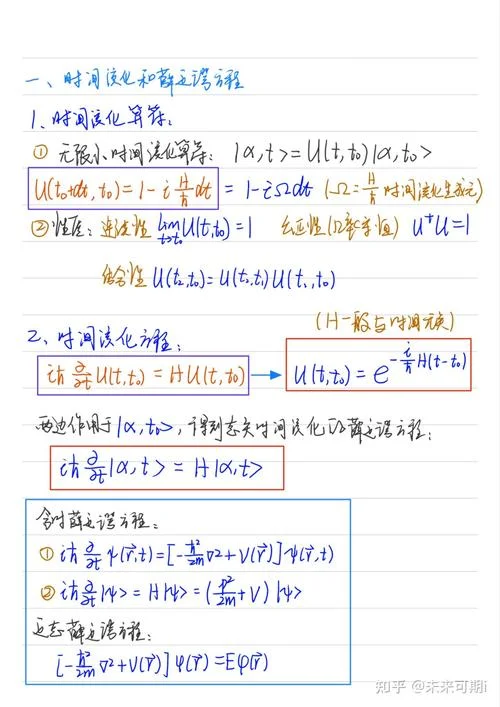 一、时间演化和薛定谔方程
1、时间演化算符：
① 无限小时间演化算符：|α,t> = U(t,t₀)|α,t₀>
U(t₀+dt, t₀) = 1 - i H/ħ dt = 1 - iΩdt (Ω = H/ħ 时间演化生成元)
② 性质：连续性 lim t→t₀ U(t,t₀) = 1 幺正性(Ω率幂) U⁺U = 1
结合性 U(t₂,t₀) = U(t₂,t₁)U(t₁,t₀)
(H一般与时间无关)
2、时间演化方程：
iħ ∂/∂t U(t,t₀) = HU(t,t₀) → U(t,t₀) = e^{-i/ħ H(t-t₀)}
两边作用于|α,t₀>，得到态矢时间演化的薛定谔方程：
iħ ∂/∂t |α,t> = H|α,t>
含时薛定谔方程：
① iħ ∂/∂t ψ(r⃗,t) = [-ħ²/2m ∇² + V(r⃗)]ψ(r⃗,t)
② iħ ∂/∂t |ψ> = H|ψ> = (p²/2m + V)|ψ>
定态薛定谔方程：
[-ħ²/2m ∇² + V(r⃗)]φ(r⃗) = Eφ(r⃗)
知乎 @未来可期i